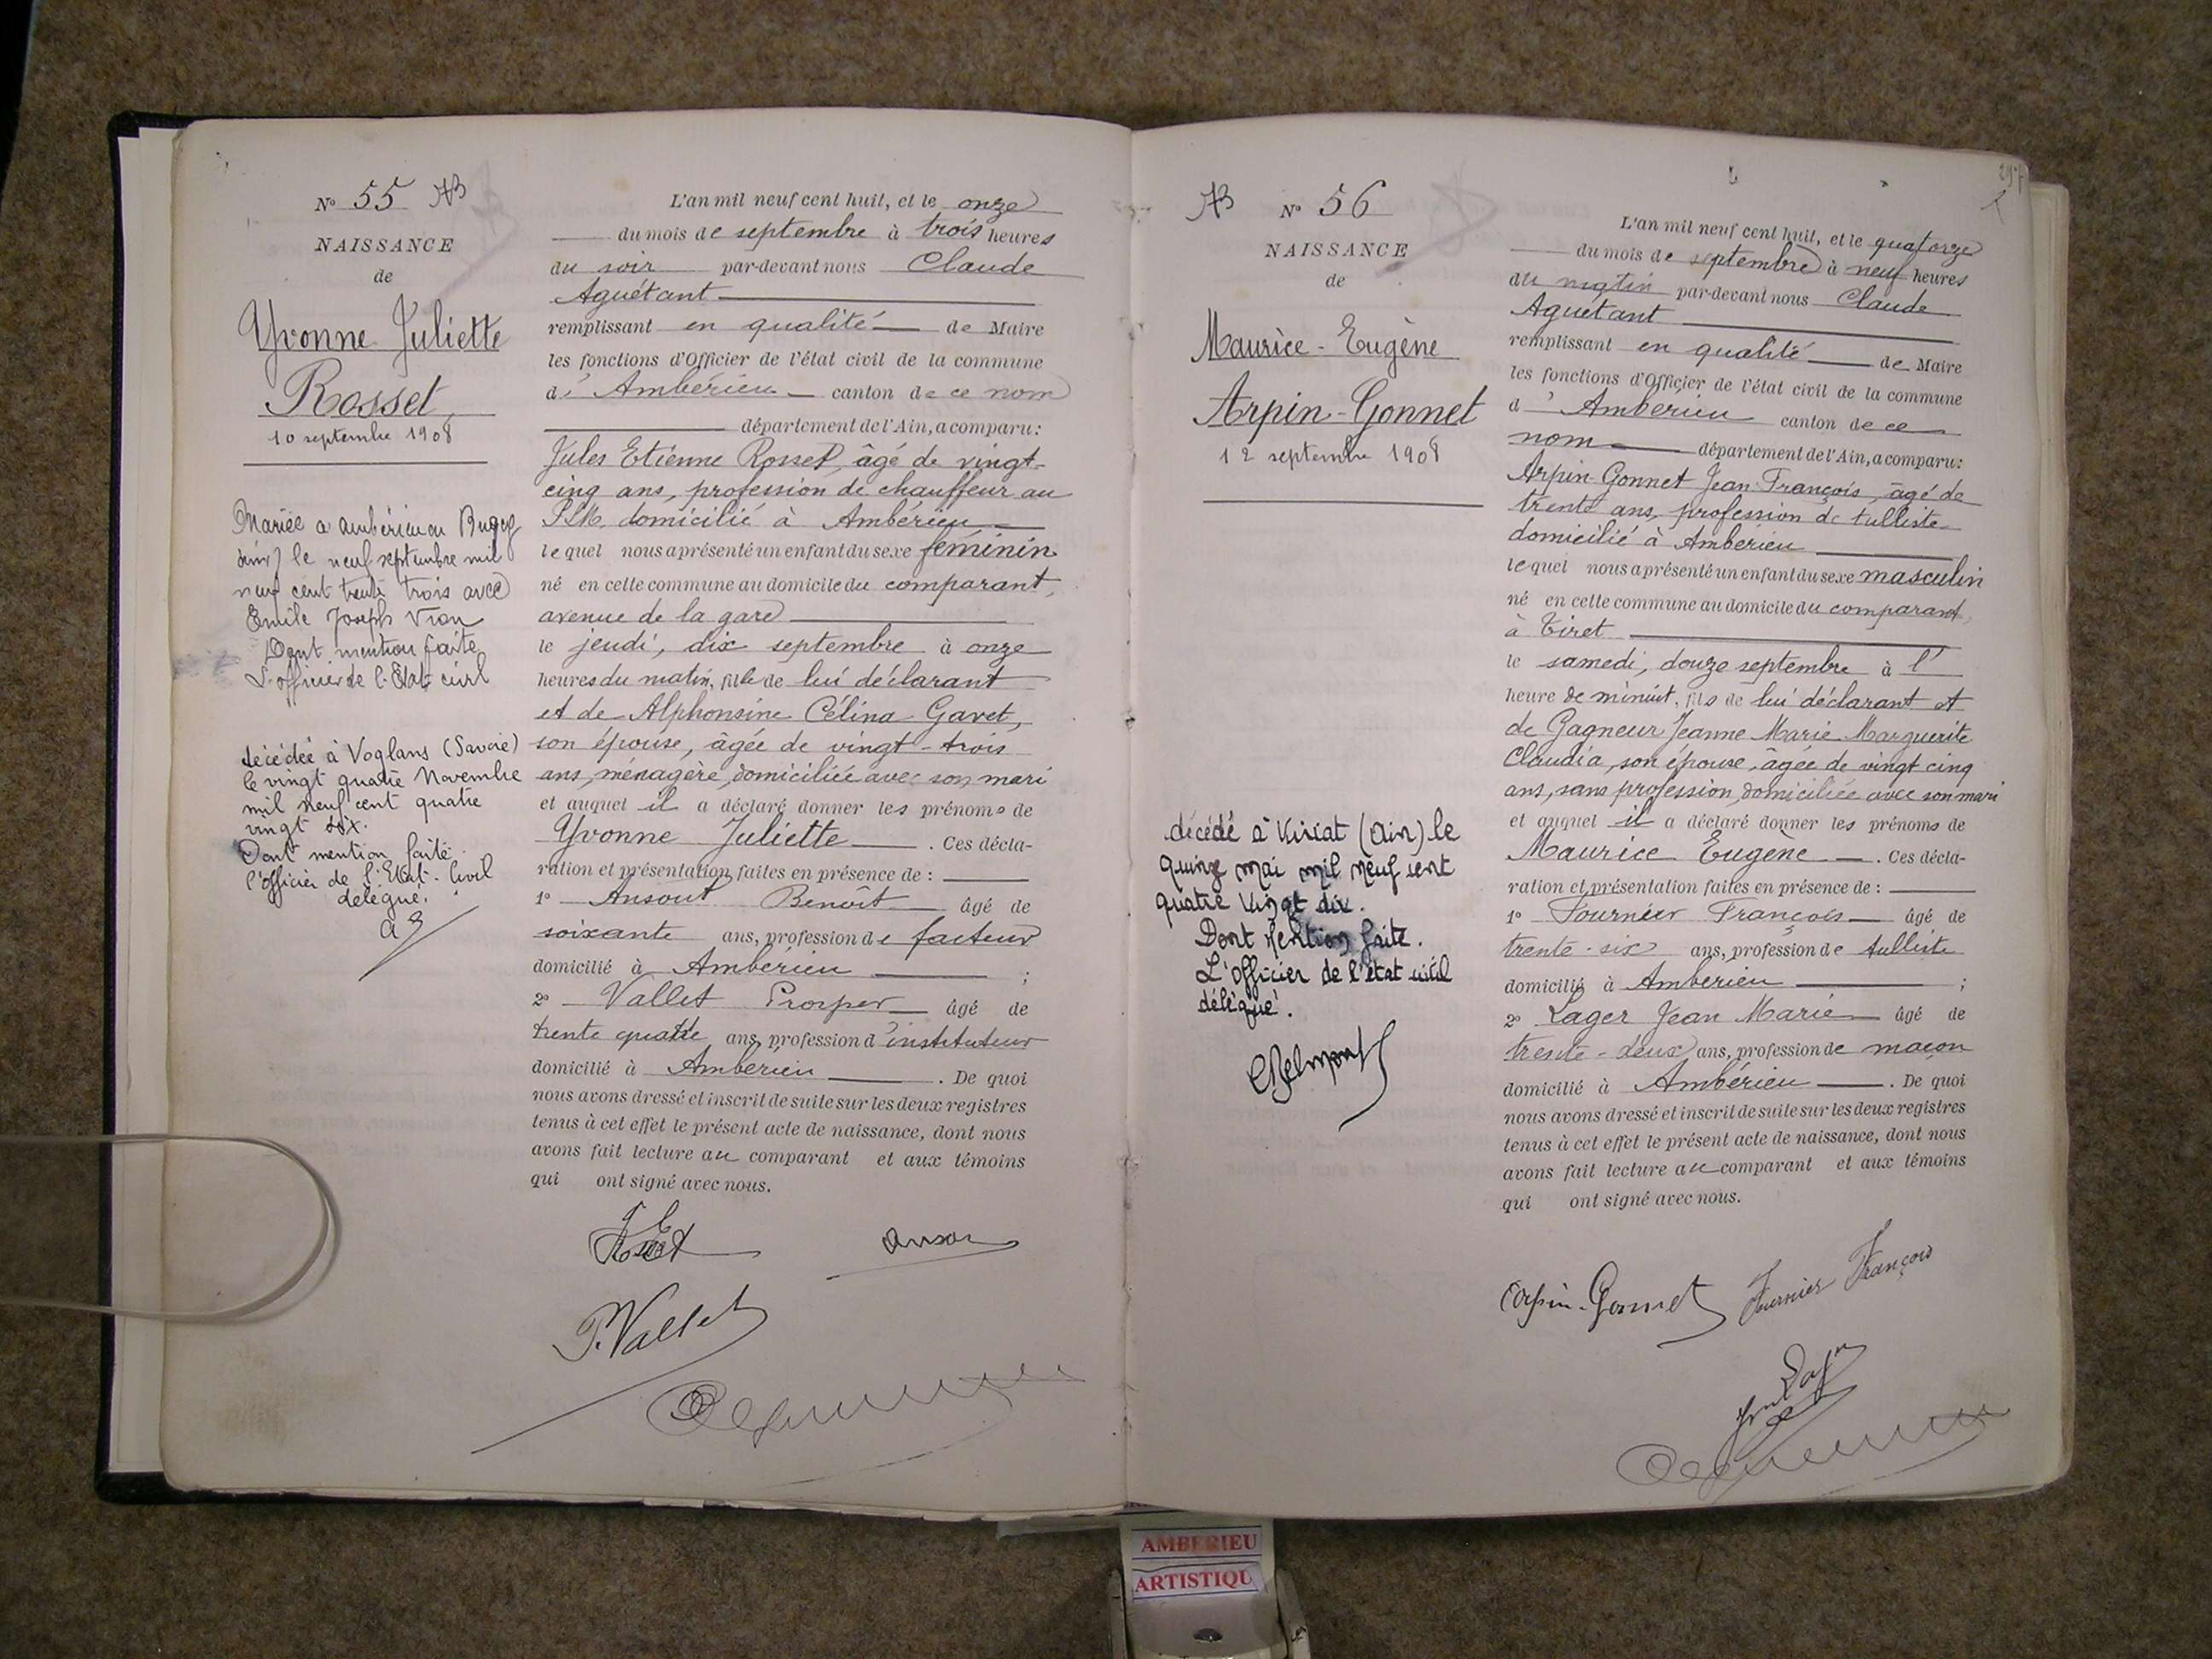 N° 55 AB
NAISSANCE
de
Yvonne Juliette
Rosset
10 septembre 1908
Mariée à Ambérieu en Bugey
(Ain) le neuf septembre mil
neuf cent trente trois avec
Emile Joseph Vian
Dont mention faite
L'officier de l'Etat civil
décédée à Voglans (Savoie)
le vingt quatre Novembre
mil neuf cent quatre
vingt six.
Dont mention faite.
l'officier de l'Etat-Civil
délégué.
L'an mil neuf cent huit, et le onze
du mois de septembre à trois heures
du soir par-devant nous Claude
Aguétant
remplissant en qualité de Maire
les fonctions d'Officier de l'état civil de la commune
d'Ambérieu canton de ce nom
département de l'Ain, a comparu:
Jules Etienne Rosset, âgé de vingt-
cinq ans, profession de chauffeur au
PLM, domicilié à Ambérieu
lequel nous a présenté un enfant du sexe féminin
né en cette commune au domicile du comparant,
avenue de la gare
le jeudi, dix septembre à onze
heures du matin, fille de lui déclarant
et de Alphonsine Célina Gavet,
son épouse, âgée de vingt-trois
ans, ménagère, domiciliée avec son mari
et auquel il a déclaré donner les prénoms de
Yvonne Juliette. Ces décla-
ration et présentation faites en présence de :
1° Ansout Benoît âgé de
soixante ans, profession de facteur
domicilié à Ambérieu ;
2° Vallet Prosper âgé de
trente quatre ans, profession d'instituteur
domicilié à Ambérieu. De quoi
nous avons dressé et inscrit de suite sur les deux registres
tenus à cet effet le présent acte de naissance, dont nous
avons fait lecture au comparant et aux témoins
qui ont signé avec nous.
P. Vallet
AB N° 56
NAISSANCE
de
Maurice-Eugène
Arpin-Gonnet
12 septembre 1908
décédé à Viriat (Ain) le
quinze mai mil neuf cent
quatre vingt dix.
Dont mention faite.
L'officier de l'état civil
délégué.
L'an mil neuf cent huit, et le quatorze
du mois de septembre à neuf heures
du matin par-devant nous Claude
Aguétant
remplissant en qualité de Maire
les fonctions d'Officier de l'état civil de la commune
d'Ambérieu canton de ce
nom département de l'Ain, a comparu:
Arpin-Gonnet Jean François, âgé de
trente ans, profession de tulliste
domicilié à Ambérieu
lequel nous a présenté un enfant du sexe masculin
né en cette commune au domicile du comparant,
à Tiret
le samedi, douze septembre à l'
heure de minuit, fils de lui déclarant et
de Gagneur Jeanne Marie Marguerite
Claudia, son épouse, âgée de vingt cinq
ans, sans profession, domiciliée avec son mari
et auquel il a déclaré donner les prénoms de
Maurice Eugène. Ces décla-
ration et présentation faites en présence de :
1° Fournier François âgé de
trente-six ans, profession de tulliste
domicilié à Ambérieu ;
2° Lager Jean Marie âgé de
trente-deux ans, profession de maçon
domicilié à Ambérieu. De quoi
nous avons dressé et inscrit de suite sur les deux registres
tenus à cet effet le présent acte de naissance, dont nous
avons fait lecture au comparant et aux témoins
qui ont signé avec nous.
Arpin-Gonnet Fournier François
AMBERIEU
ARTISTIQU